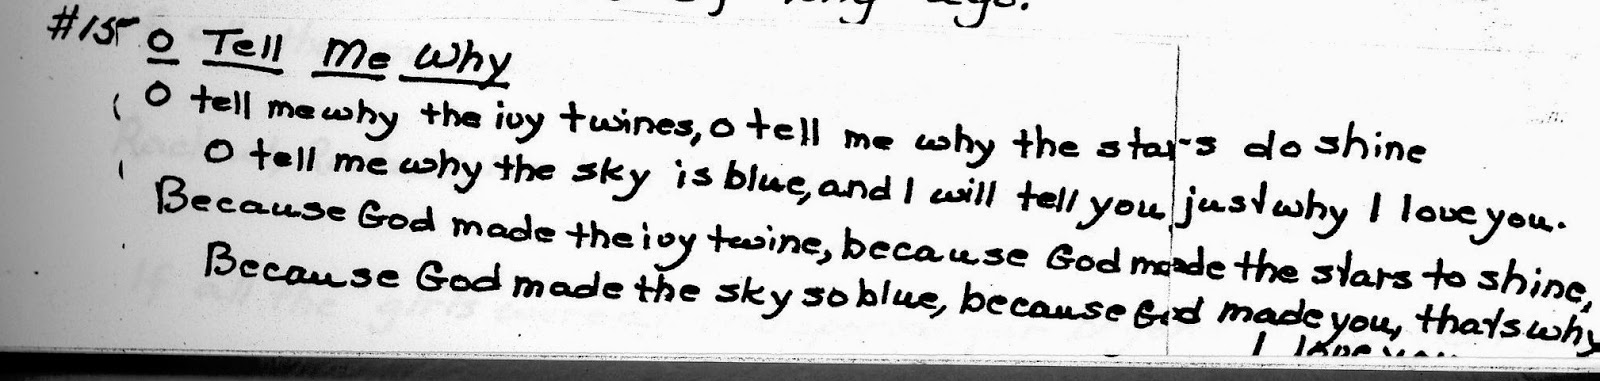 long ago.
#15 O Tell Me Why
O tell me why the ivy twines, o tell me why the stars do shine
O tell me why the sky is blue, and I will tell you just why I love you.
Because God made the ivy twine, because God made the stars to shine,
Because God made the sky so blue, because God made you, thats why
I love you